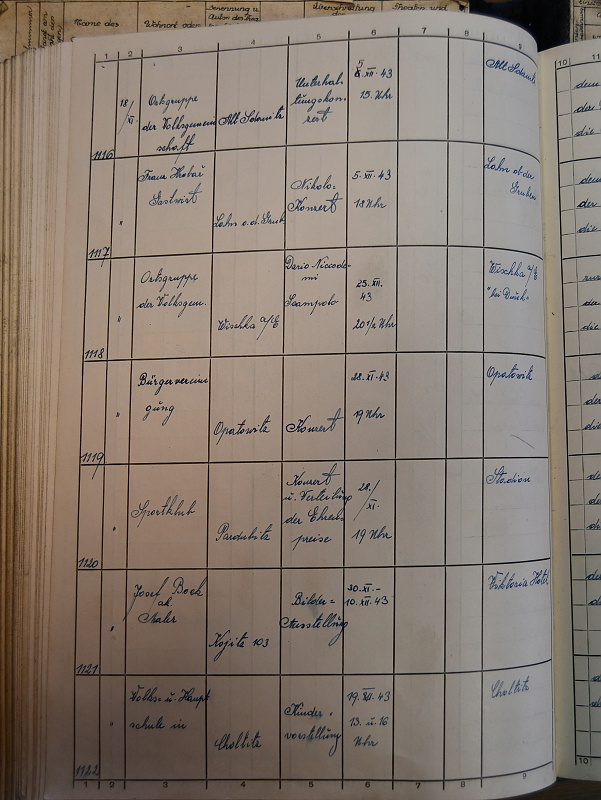 Name des
Wohnort oder
Benennung u.
Theaters und
1 2 3 4 5 6 7 8 9
10
1116
18/XI
Ortsgruppe
der Volksgemein
schaft
Alt Sdanitz
Unterhal-
tungskon-
zert
5.XII.43
15. Uhr
1117
"
Franz
Gastwirt
Lahn o.d. Grub.
Nikolo-
Konzert
5.XII.43
18 Uhr
Lahn ob der
Gruben
1118
"
Ortsgruppe
der Volksgem.
Wischka a/E
Dario Niccode-
mi
Scampolo
25.XII.
43
20 1/2 Uhr
Wischka a/E
1119
"
Bürgerverein
gung
Opatowitz
Konzert
28.XI.43
19 Uhr
Opatowitz
1120
"
Sportklub
Pardubitz
Konzert
u. Verleihung
der Ehren-
preise
28./
XI.
19 Uhr
Stadion
1121
"
Josef Bock
ak.
Maler
Kojitz 103
Bilder=
Ausstellung
30.XI.-
10.XII.43
Viktoria Hotel
1122
"
Volks- u. Haupt
schule in
Choltitz
Kinder-
vorstellung
19.XII.43
13. u. 16
Uhr
Choltitz
1 2 3 4 5 6 7 8 9
10